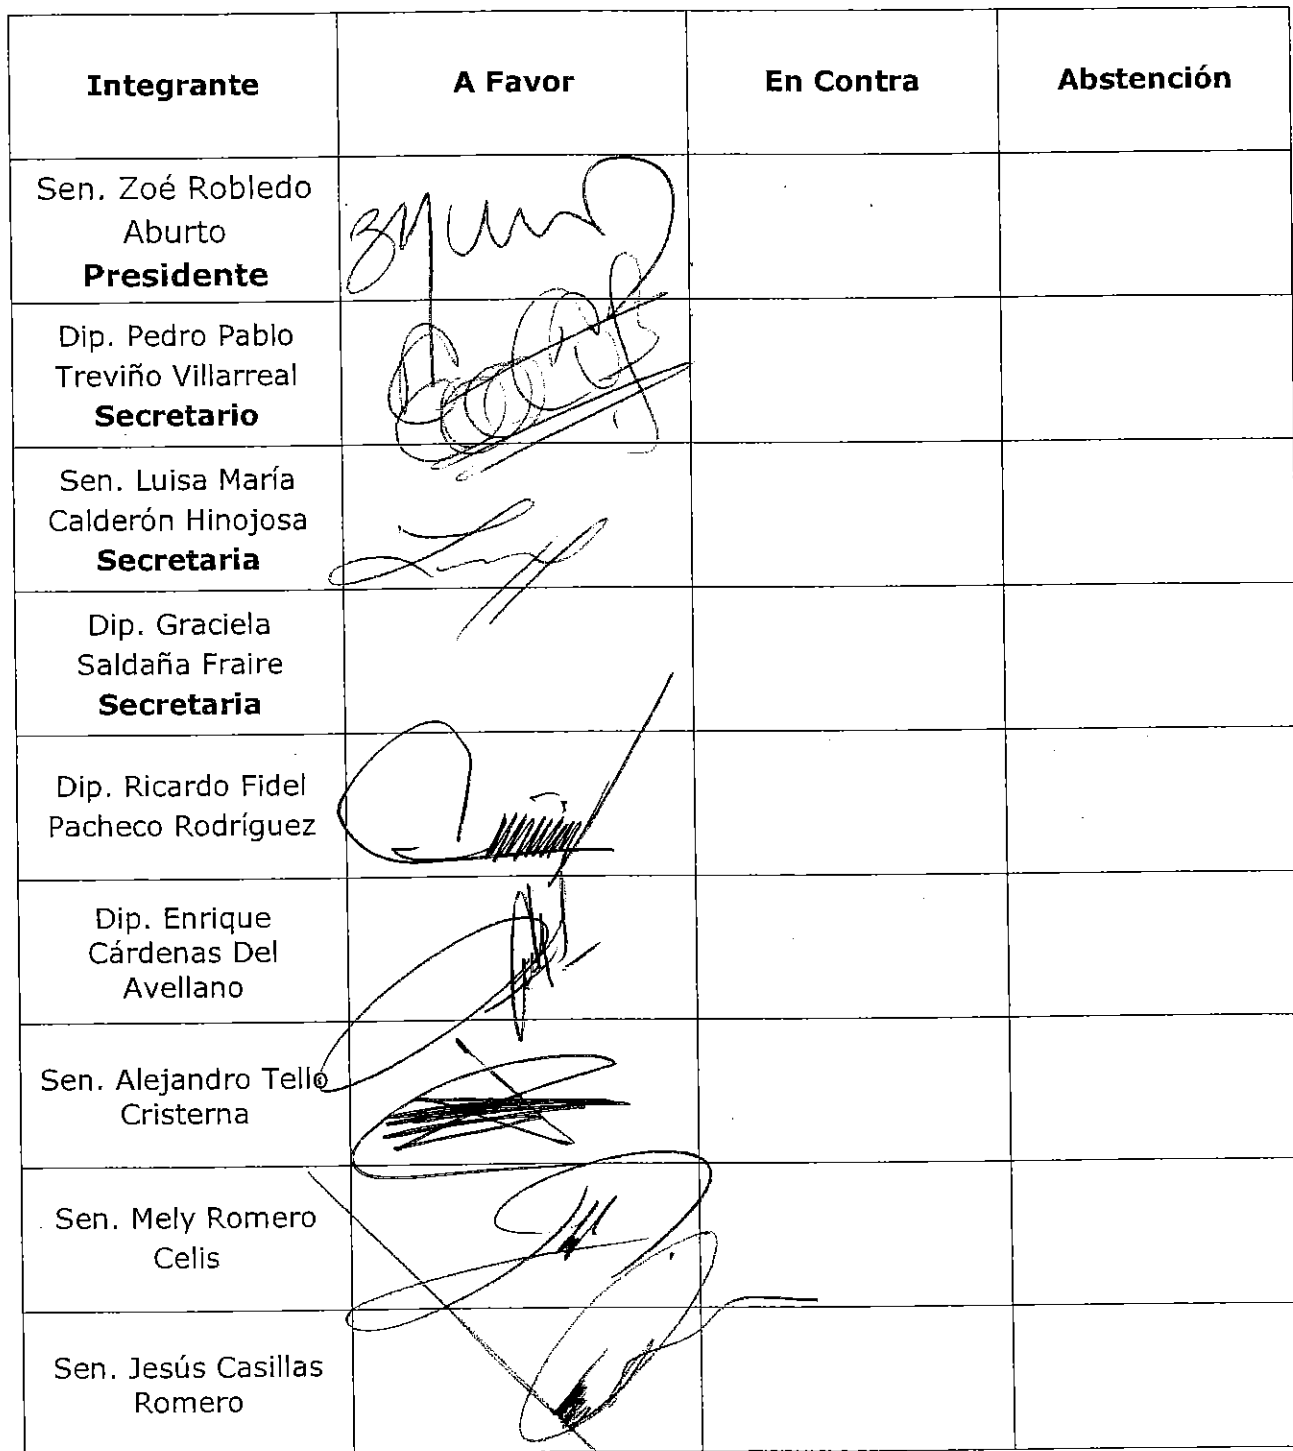 Integrante A Favor En Contra Abstención
Sen. Zoé Robledo
Aburto
Presidente
Dip. Pedro Pablo
Treviño Villarreal
Secretario
Sen. Luisa María
Calderón Hinojosa
Secretaria
Dip. Graciela
Saldaña Fraire
Secretaria
Dip. Ricardo Fidel
Pacheco Rodríguez
Dip. Enrique
Cárdenas Del
Avellano
Sen. Alejandro Tello
Cristerna
Sen. Mely Romero
Celis
Sen. Jesús Casillas
Romero